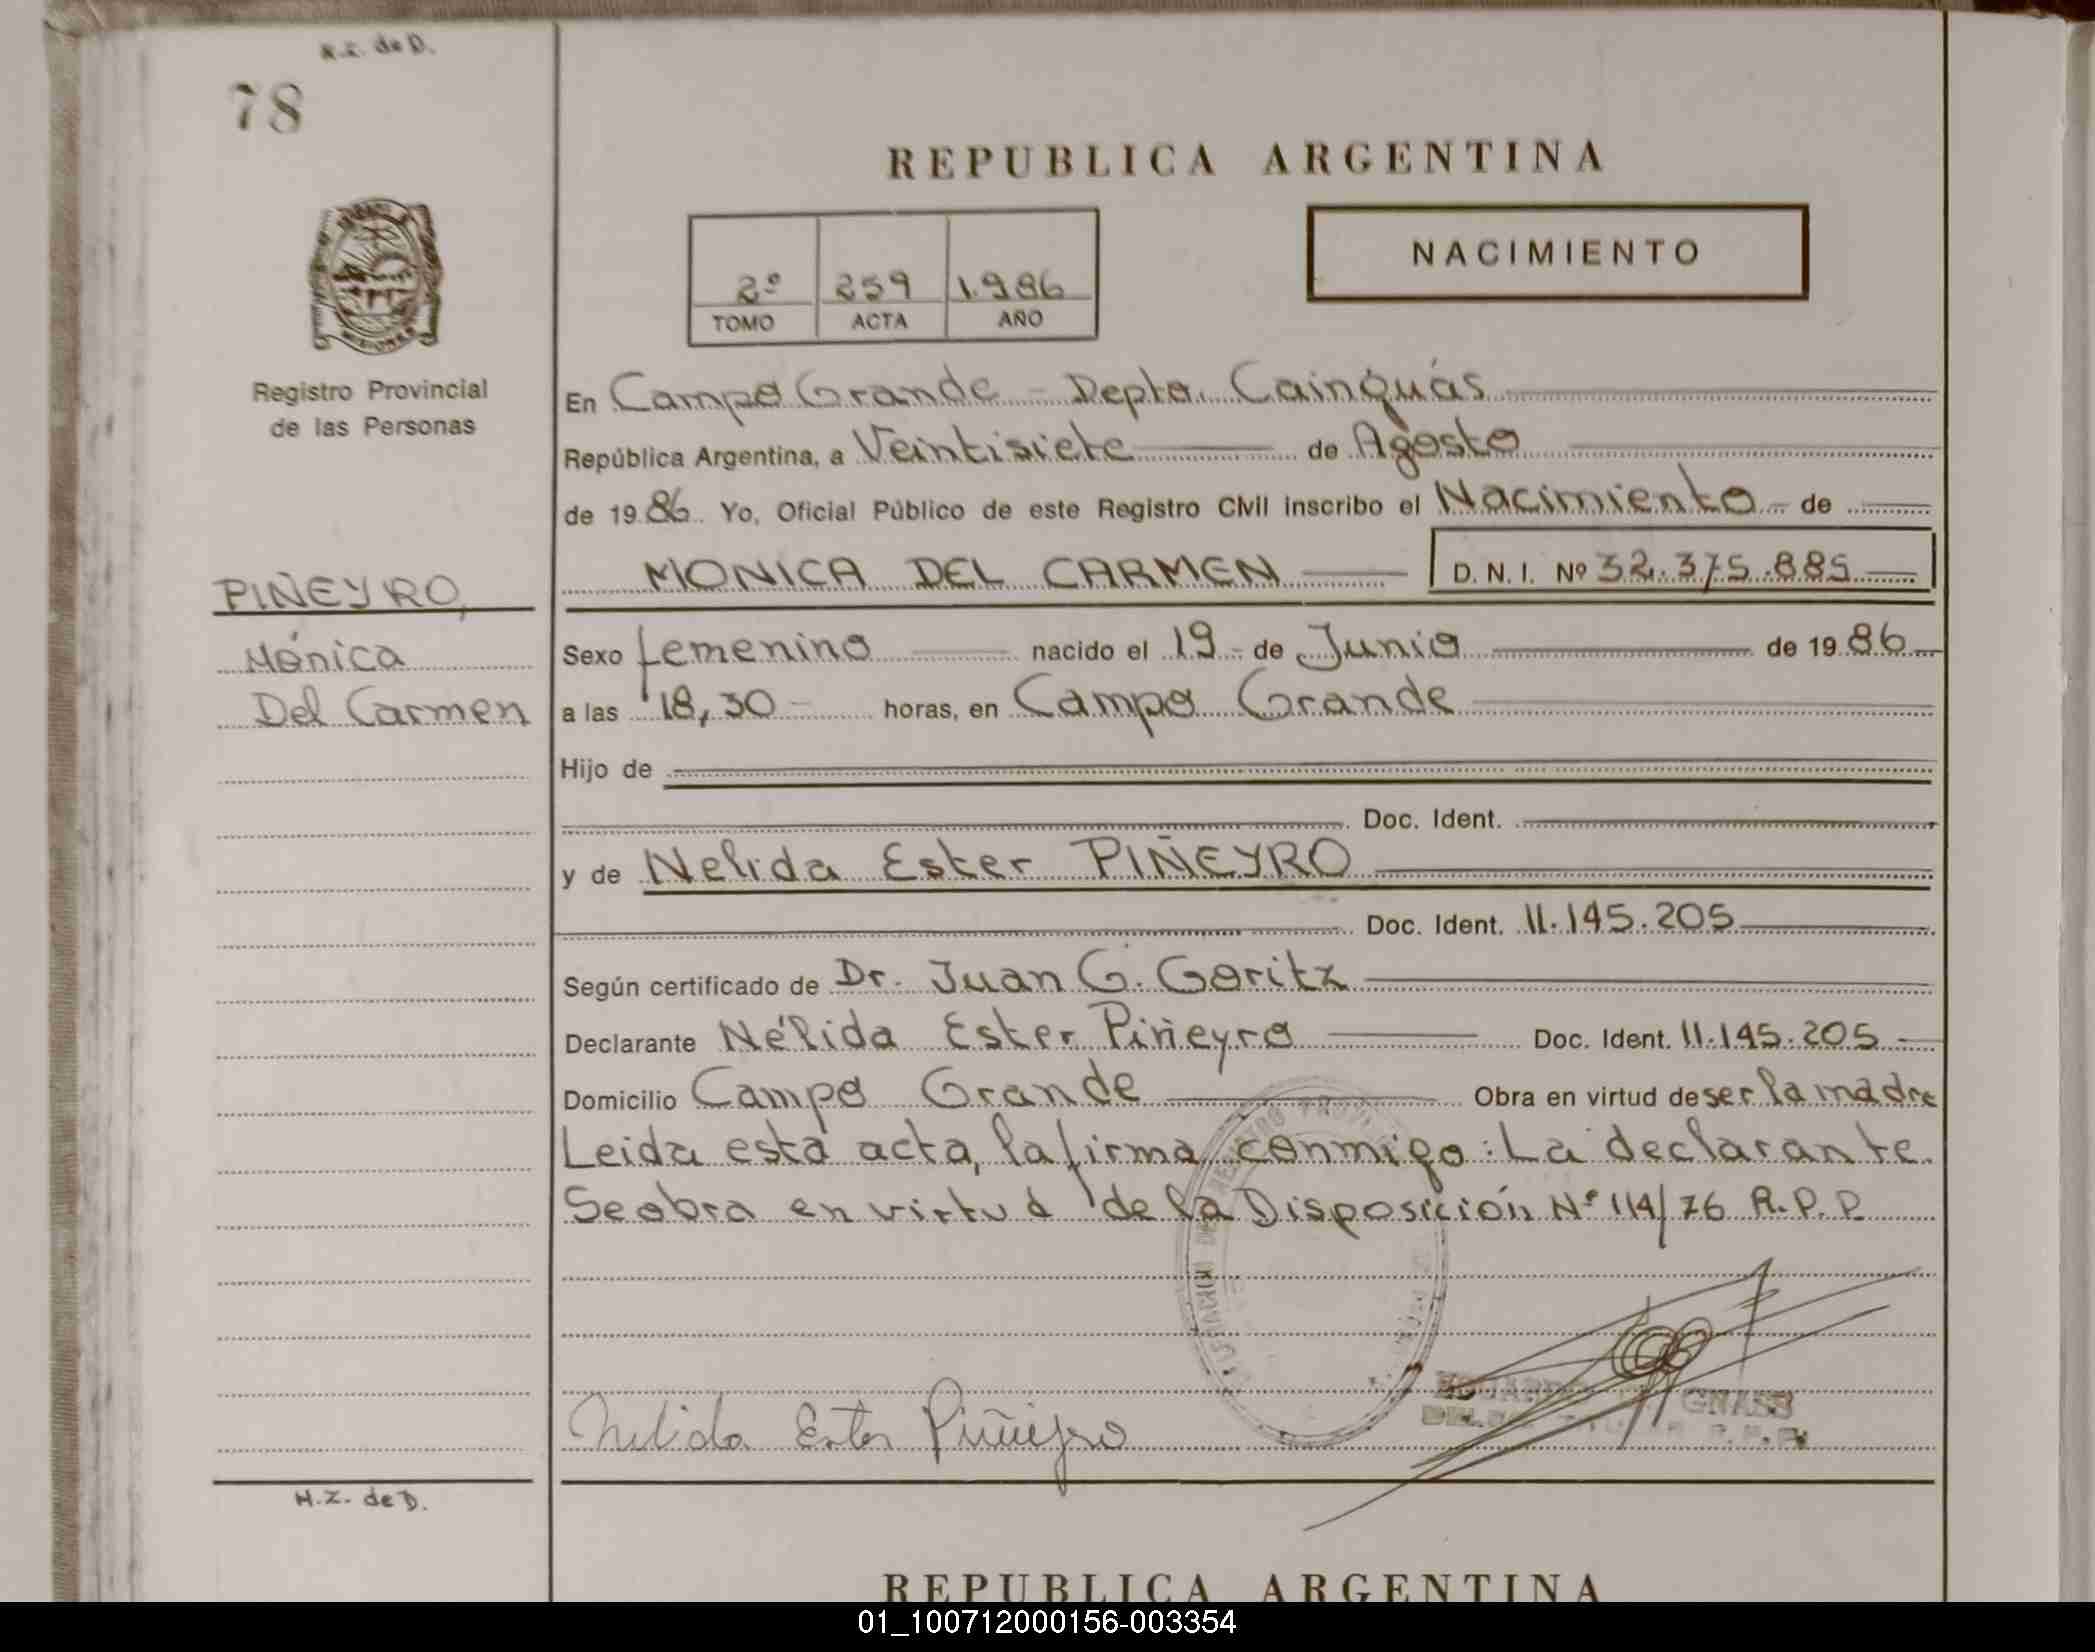 N.Z. de D.
78
REPUBLICA ARGENTINA
NACIMIENTO
2º 259 1.986
TOMO ACTA AÑO
MISIONES
Registro Provincial
de las Personas
PIÑEYRO,
Mónica
Del Carmen
En Campo Grande - Depto. Cainguás
República Argentina, a Veintisiete de Agosto
de 1986. Yo, Oficial Público de este Registro Civil inscribo el Nacimiento - de
MONICA DEL CARMEN D.N.I. Nº 32.375.885
Sexo femenino nacido el 19 - de Junio de 1986
a las 18,30 - horas, en Campo Grande
Hijo de
Doc. Ident.
y de Nelida Ester PIÑEYRO
Doc. Ident. 11.145.205
Según certificado de Dr. Juan G. Goritz
Declarante Nélida Ester Piñeyro Doc. Ident. 11.145.205
Domicilio Campo Grande Obra en virtud de ser la madre
Leida esta acta, la firma conmigo: La declarante.
Se obra en virtud de la Disposición Nº 114/76 R.P.P.
GNASS
Nelida Ester Piñeyro
N.Z. de D.
REPUBLICA ARGENTINA
01_100712000156-003354